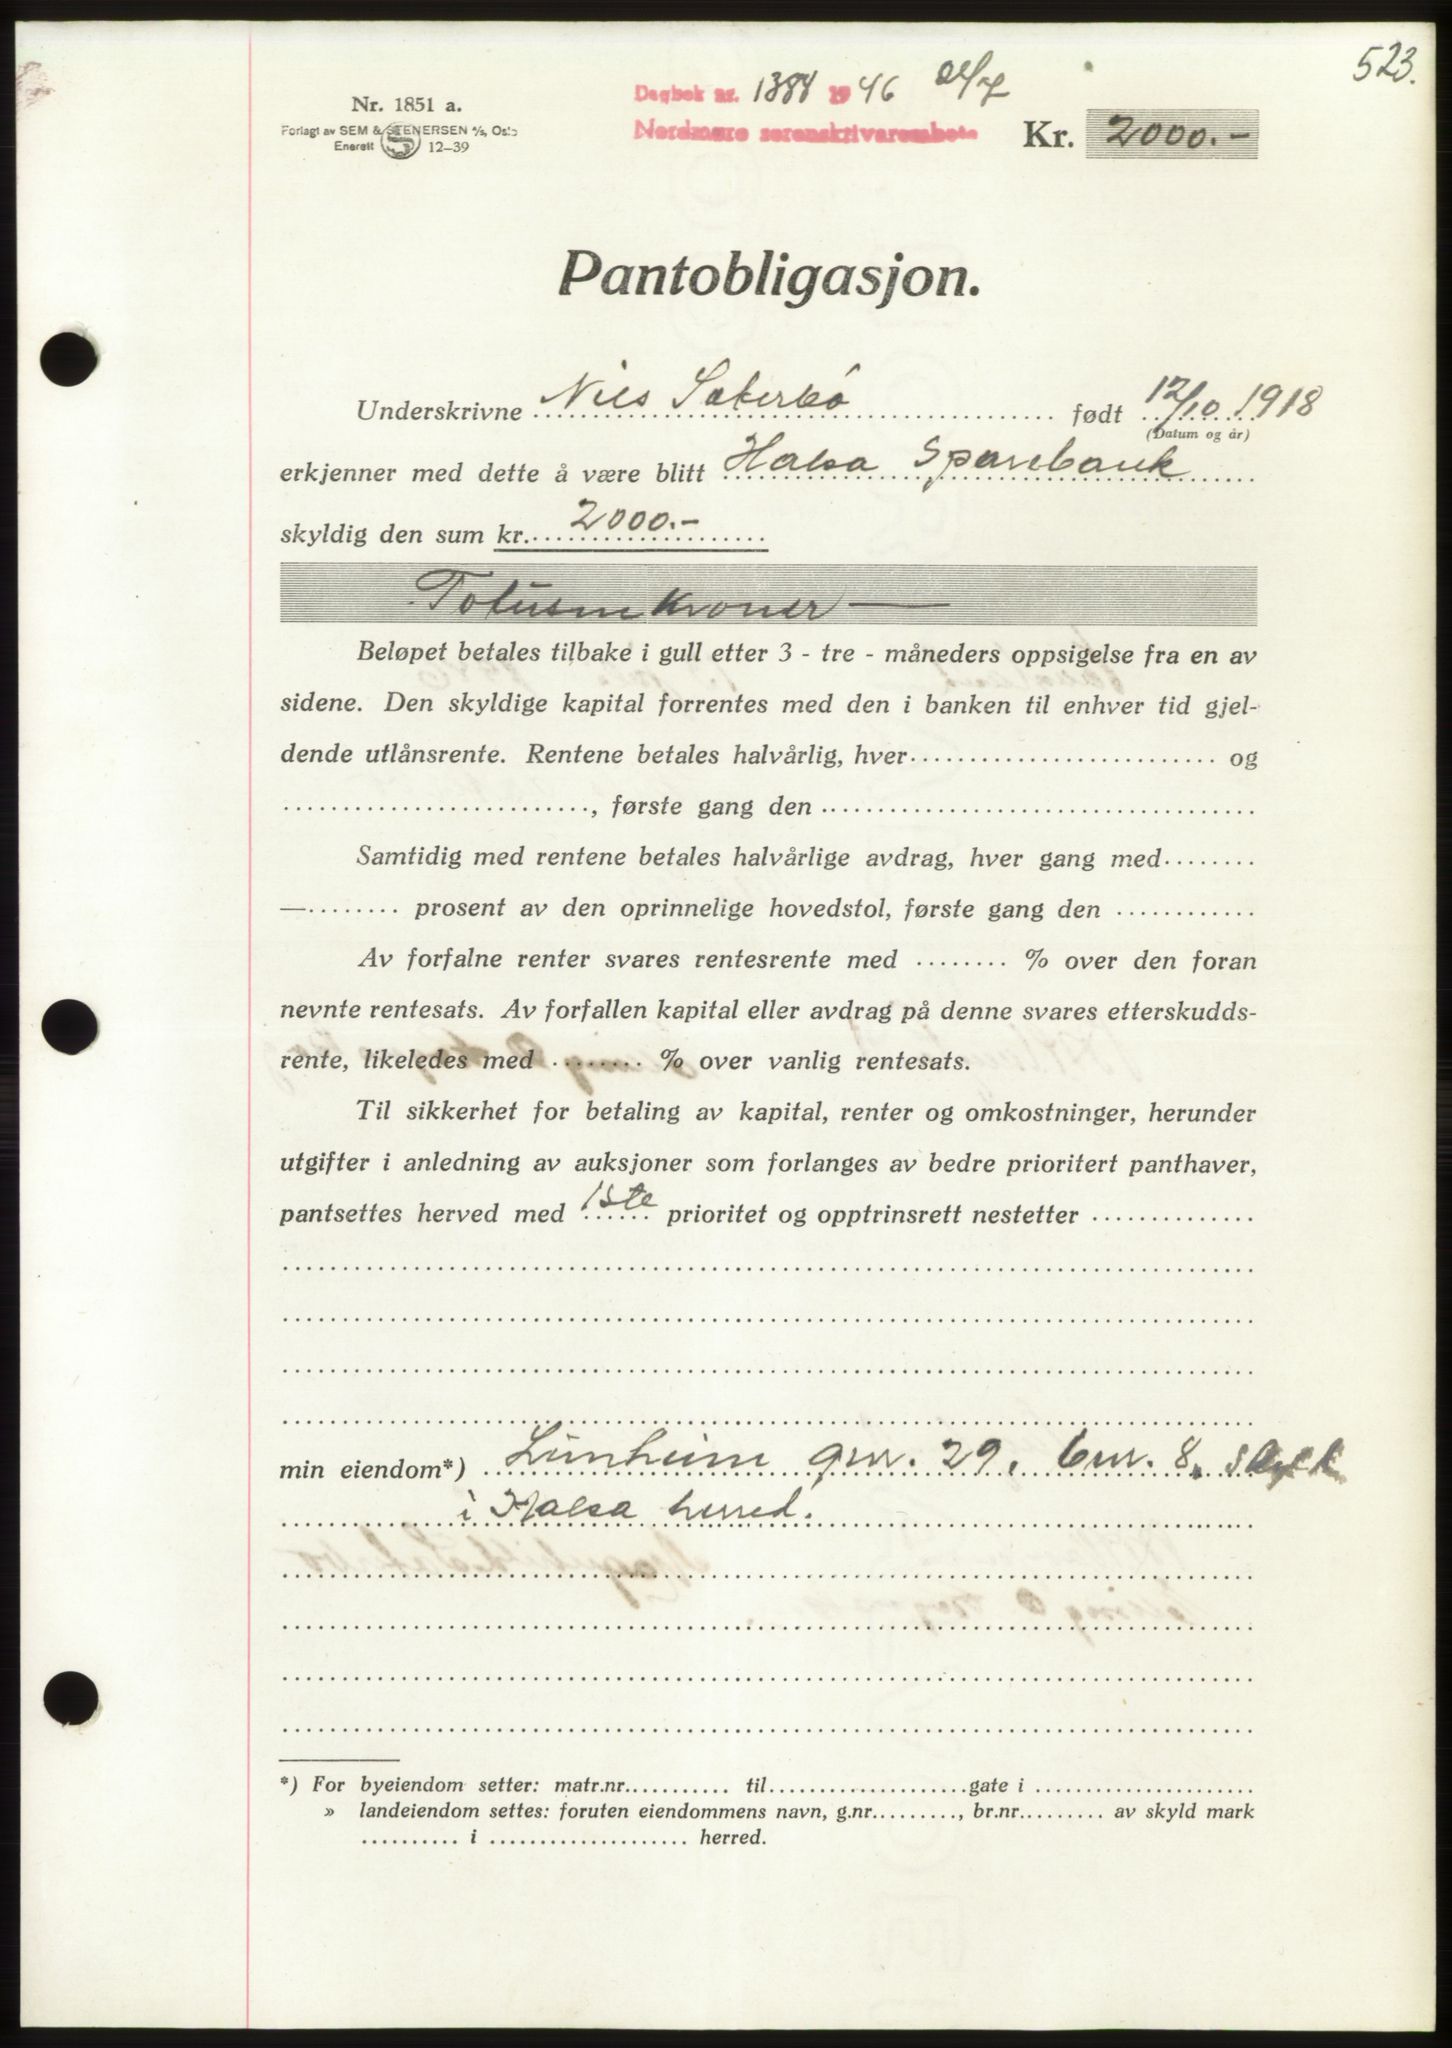 523.
Nr. 1851 a.
Forlagt av SEM & STENERSEN A/S, Oslo
Enerett S 12-39
Dagbok nr. 1388 1946
Nordmøre sorenskriverembete
Kr. 2000.-
Pantobligasjon.
Underskrivne Nils Sæterbø født 12/10 1918
(Datum og år)
erkjenner med dette å være blitt Halsa Sparebank
skyldig den sum kr. 2000.-
Totusen kroner —
Beløpet betales tilbake i gull etter 3 - tre - måneders oppsigelse fra en av
sidene. Den skyldige kapital forrentes med den i banken til enhver tid gjel-
dende utlånsrente. Rentene betales halvårlig, hver .......... og
.........., første gang den ..........
Samtidig med rentene betales halvårlige avdrag, hver gang med ........
— ........ prosent av den oprinnelige hovedstol, første gang den ..........
Av forfalne renter svares rentesrente med ........ % over den foran
nevnte rentesats. Av forfallen kapital eller avdrag på denne svares etterskudds-
rente, likeledes med ........ % over vanlig rentesats.
Til sikkerhet for betaling av kapital, renter og omkostninger, herunder
utgifter i anledning av auksjoner som forlanges av bedre prioritert panthaver,
pantsettes herved med 1ste prioritet og opptrinsrett nestetter ..........
min eiendom*) Lünheim gnr. 29, bnr. 8,
i Halsa herred.
*) For byeiendom setter: matr.nr. .......... til .......... gate i ..........
» landeiendom settes: foruten eiendommens navn, g.nr. ........, br.nr. ........ av skyld mark
.......... i .......... herred.